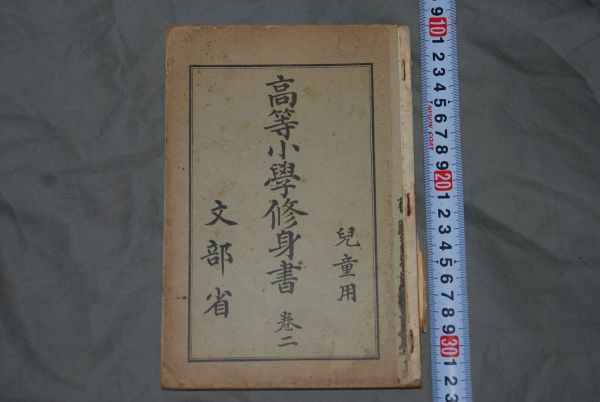 兒童用
高等小學修身書 卷二
文部省
9
10
1
2
3
4
5
6
7
8
9
20
1
2
3
4
5
6
7
8
9
30
1
2
3